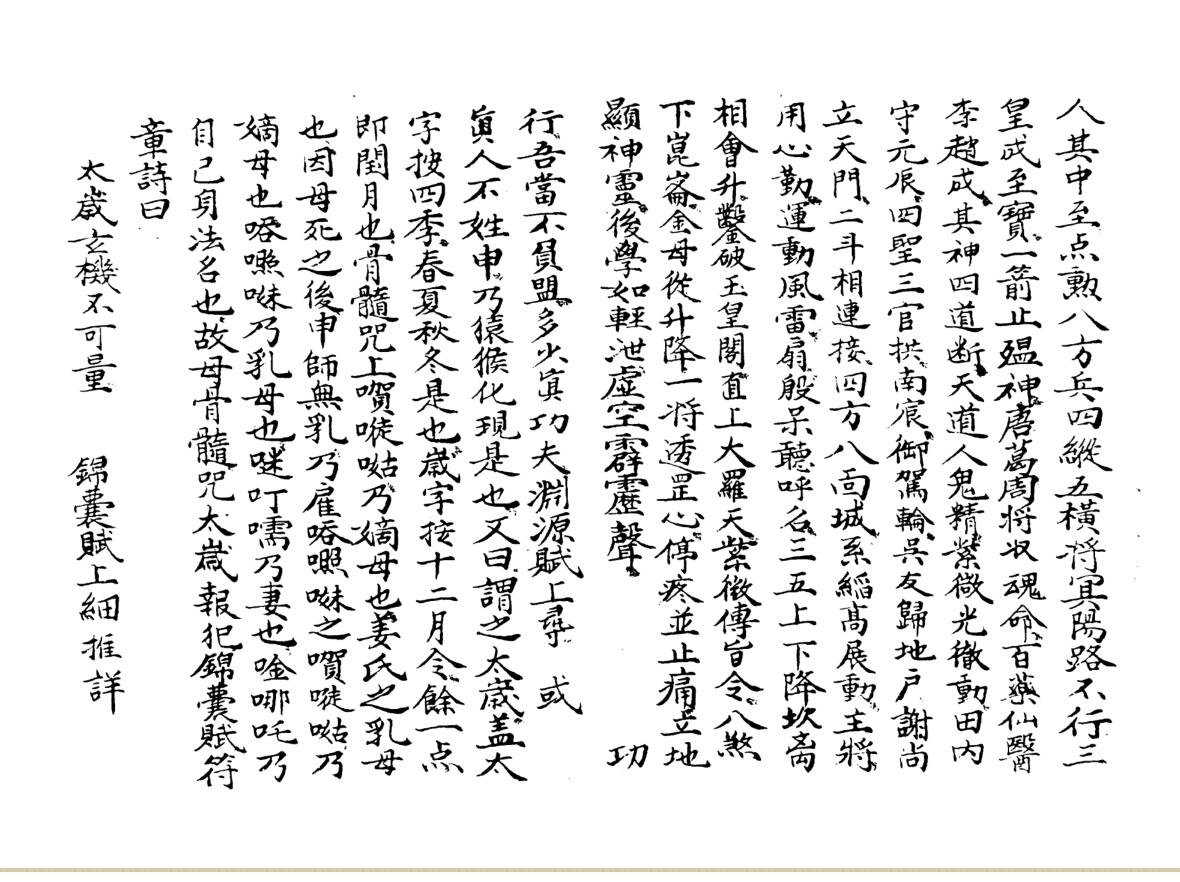 人其中至点勲八方兵四縱五橫将冥陽路不行三
皇成至寶一箭止殟神唐葛周将収魂命百藥仙醫
李趙成其神四道断天道人鬼精紫微光徹動田内
守元辰四聖三官拱南宸御駕輪呉友歸地户謝尚
立天門二斗相連接四方八面城系縚髙展動主將
用心勤運動風雷扇殷杲聽呼名三五上下降坎离
相會升鑿破玉皇閣直上大羅天紫微傳旨令八煞
下崑崙金母從升降一将透罡心停疼並止痛立地
顯神靈後學如輕泄虛空霹靂聲 功
行吾當不負盟多少真功夫淵源賦上尋 或
眞人不姓申乃猿猴化現是也又曰謂之太歲盖太
字按四季春夏秋冬是也歲字按十二月令餘一点
即閏月也骨髓咒上㗔唗㗕乃嫡母也姜氏之乳母
也因母死之後申師無乳乃雇唘嚈㖑之㗔唗㗕乃
嫡母也唘嚈㖑乃乳母也㗭叮嚅乃妻也唫哪吒乃
自己身法名也故母骨髓咒太歲報犯錦囊賦符
章詩曰
太歲玄機不可量 錦囊賦上細推詳